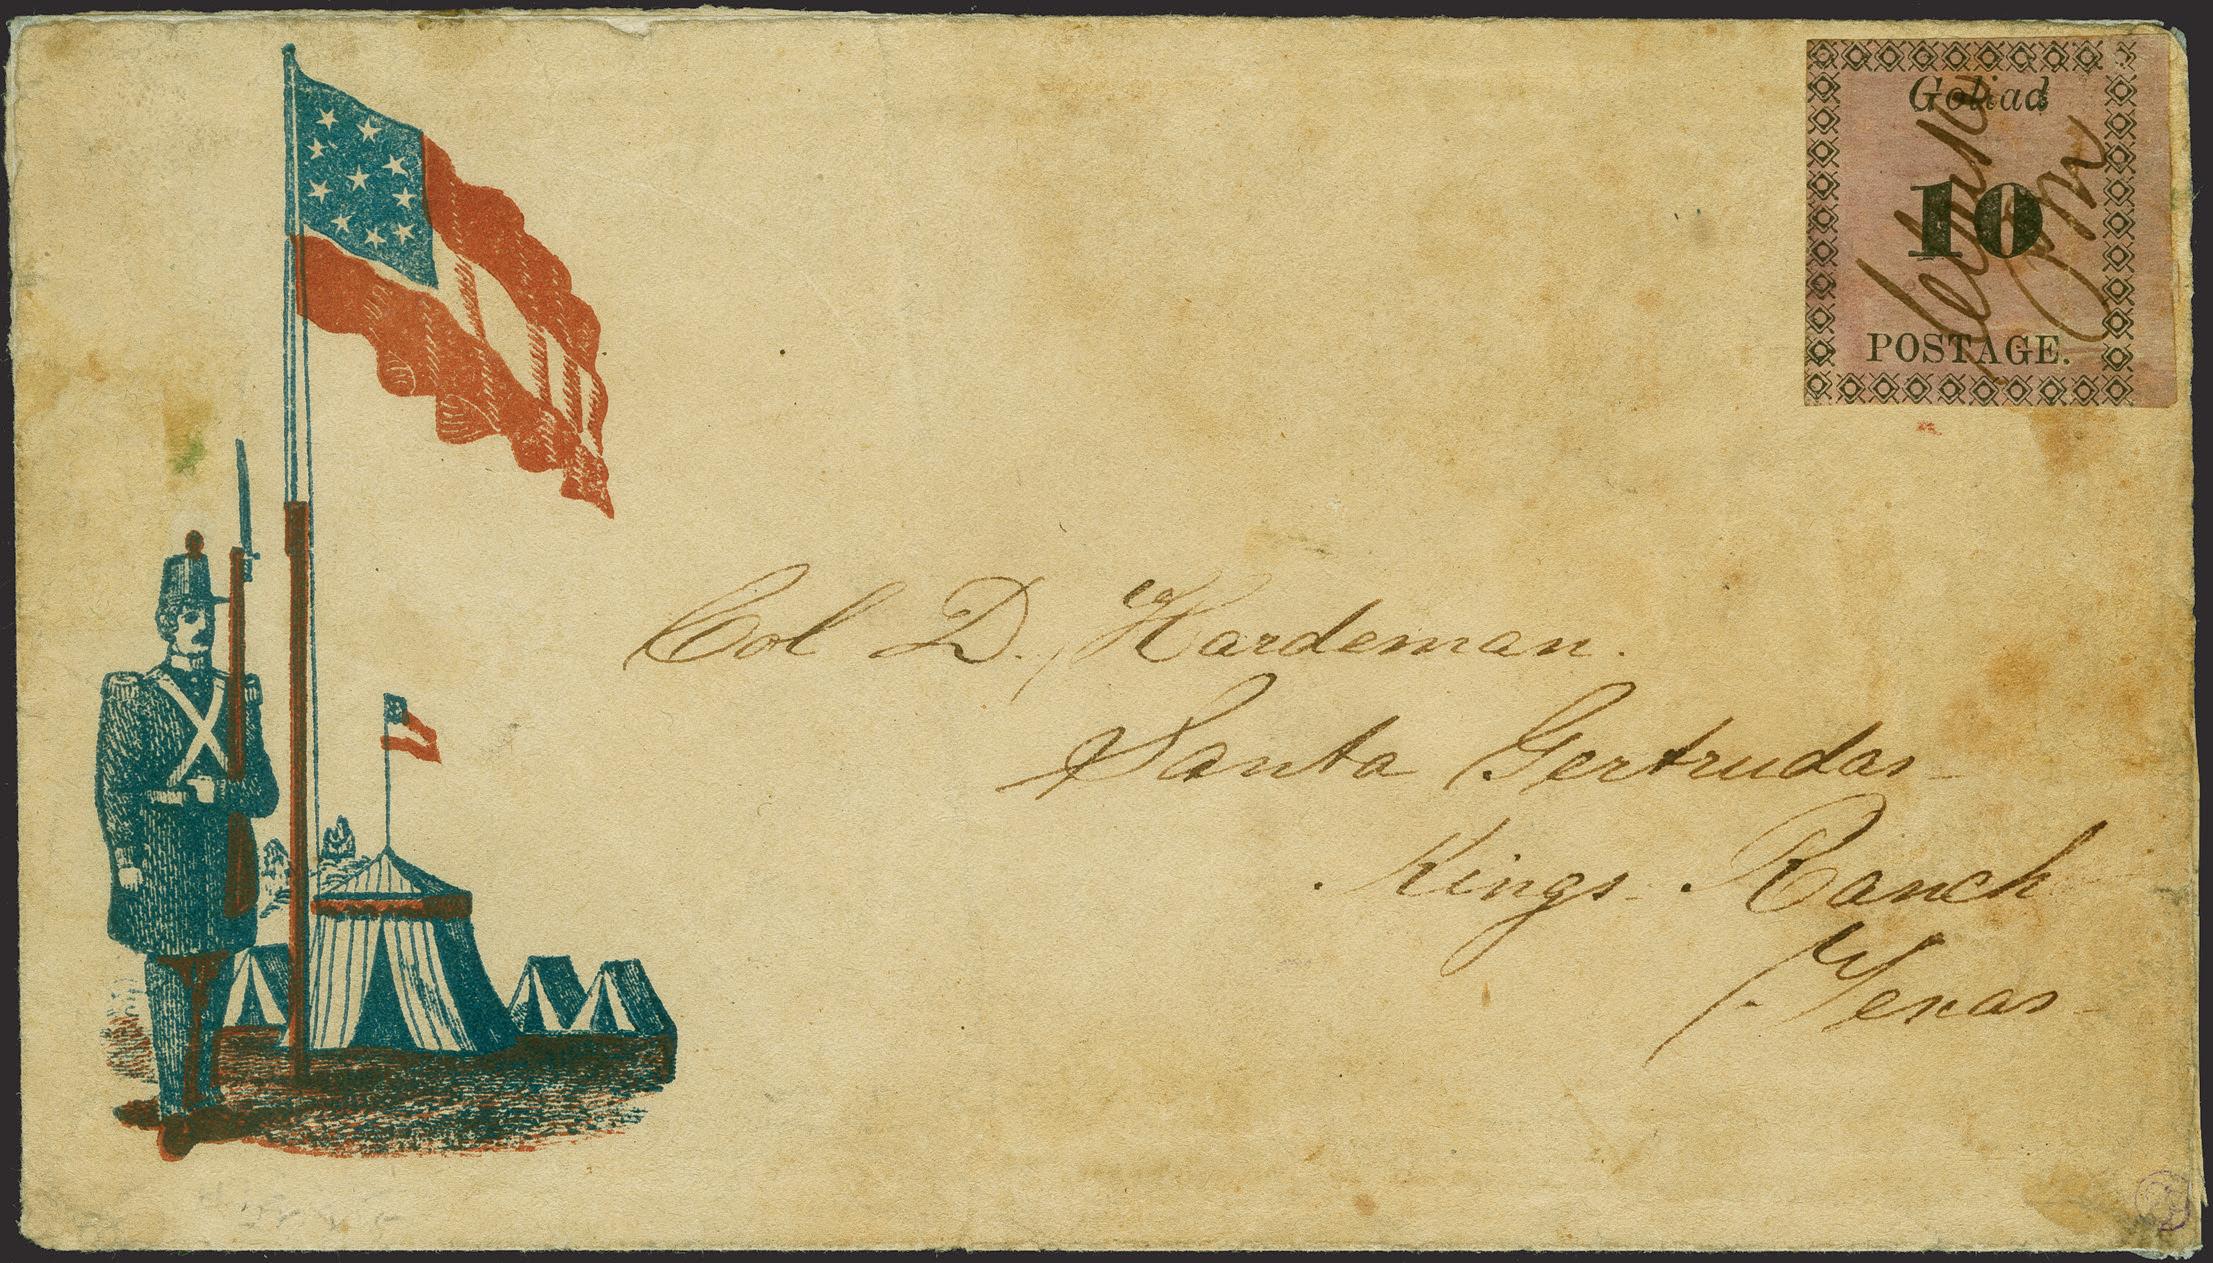 Goliad
10
POSTAGE.
Col D. Hardeman.
Santa Gertrudas
Kings Ranch
Texas